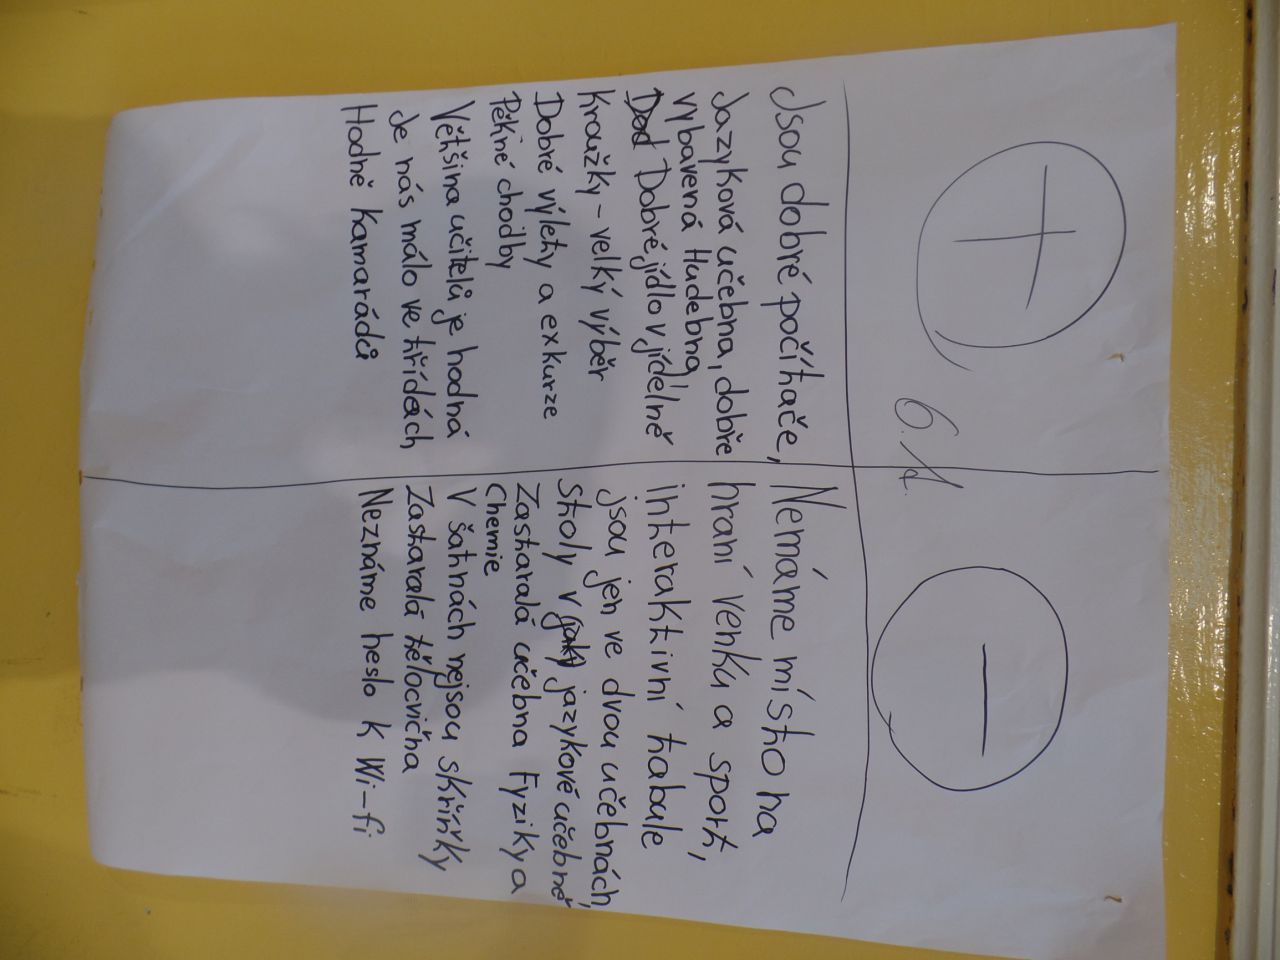 +
6.A.
−
Jsou dobré počítače,
Jazyková učebna, dobře
vybavená Hudebna,
Dobré jídlo v jídelně
Kroužky – velký výběr
Dobré výlety a exkurze
Pěkné chodby
Většina učitelů je hodná
Je nás málo ve třídách
Hodně kamarádů
Nemáme místo na
hraní venku a sport,
interaktivní tabule
jsou jen ve dvou učebnách,
Stoly v jazykové učebně
Zastaralá učebna Fyziky a
Chemie
V šatnách nejsou skříňky
Zastaralá tělocvična
Neznáme heslo k Wi-fi